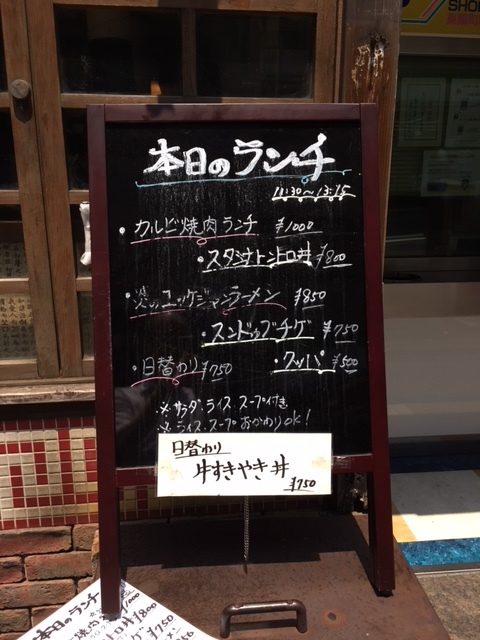 本日のランチ
11:30～13:15
・カルビ焼肉ランチ ¥1000
・スタミナトントロ丼 ¥800
・炎のユッケジャンラーメン ¥850
・スンドゥブチゲ ¥750
・日替わり ¥750
・クッパ ¥500
※サラダ、ライス、スープ付き
※ライス、スープおかわりOK!
日替わり
牛すきやき丼
¥750
本日のランチ
焼肉
¥1000
ロ丼 ¥800
¥750